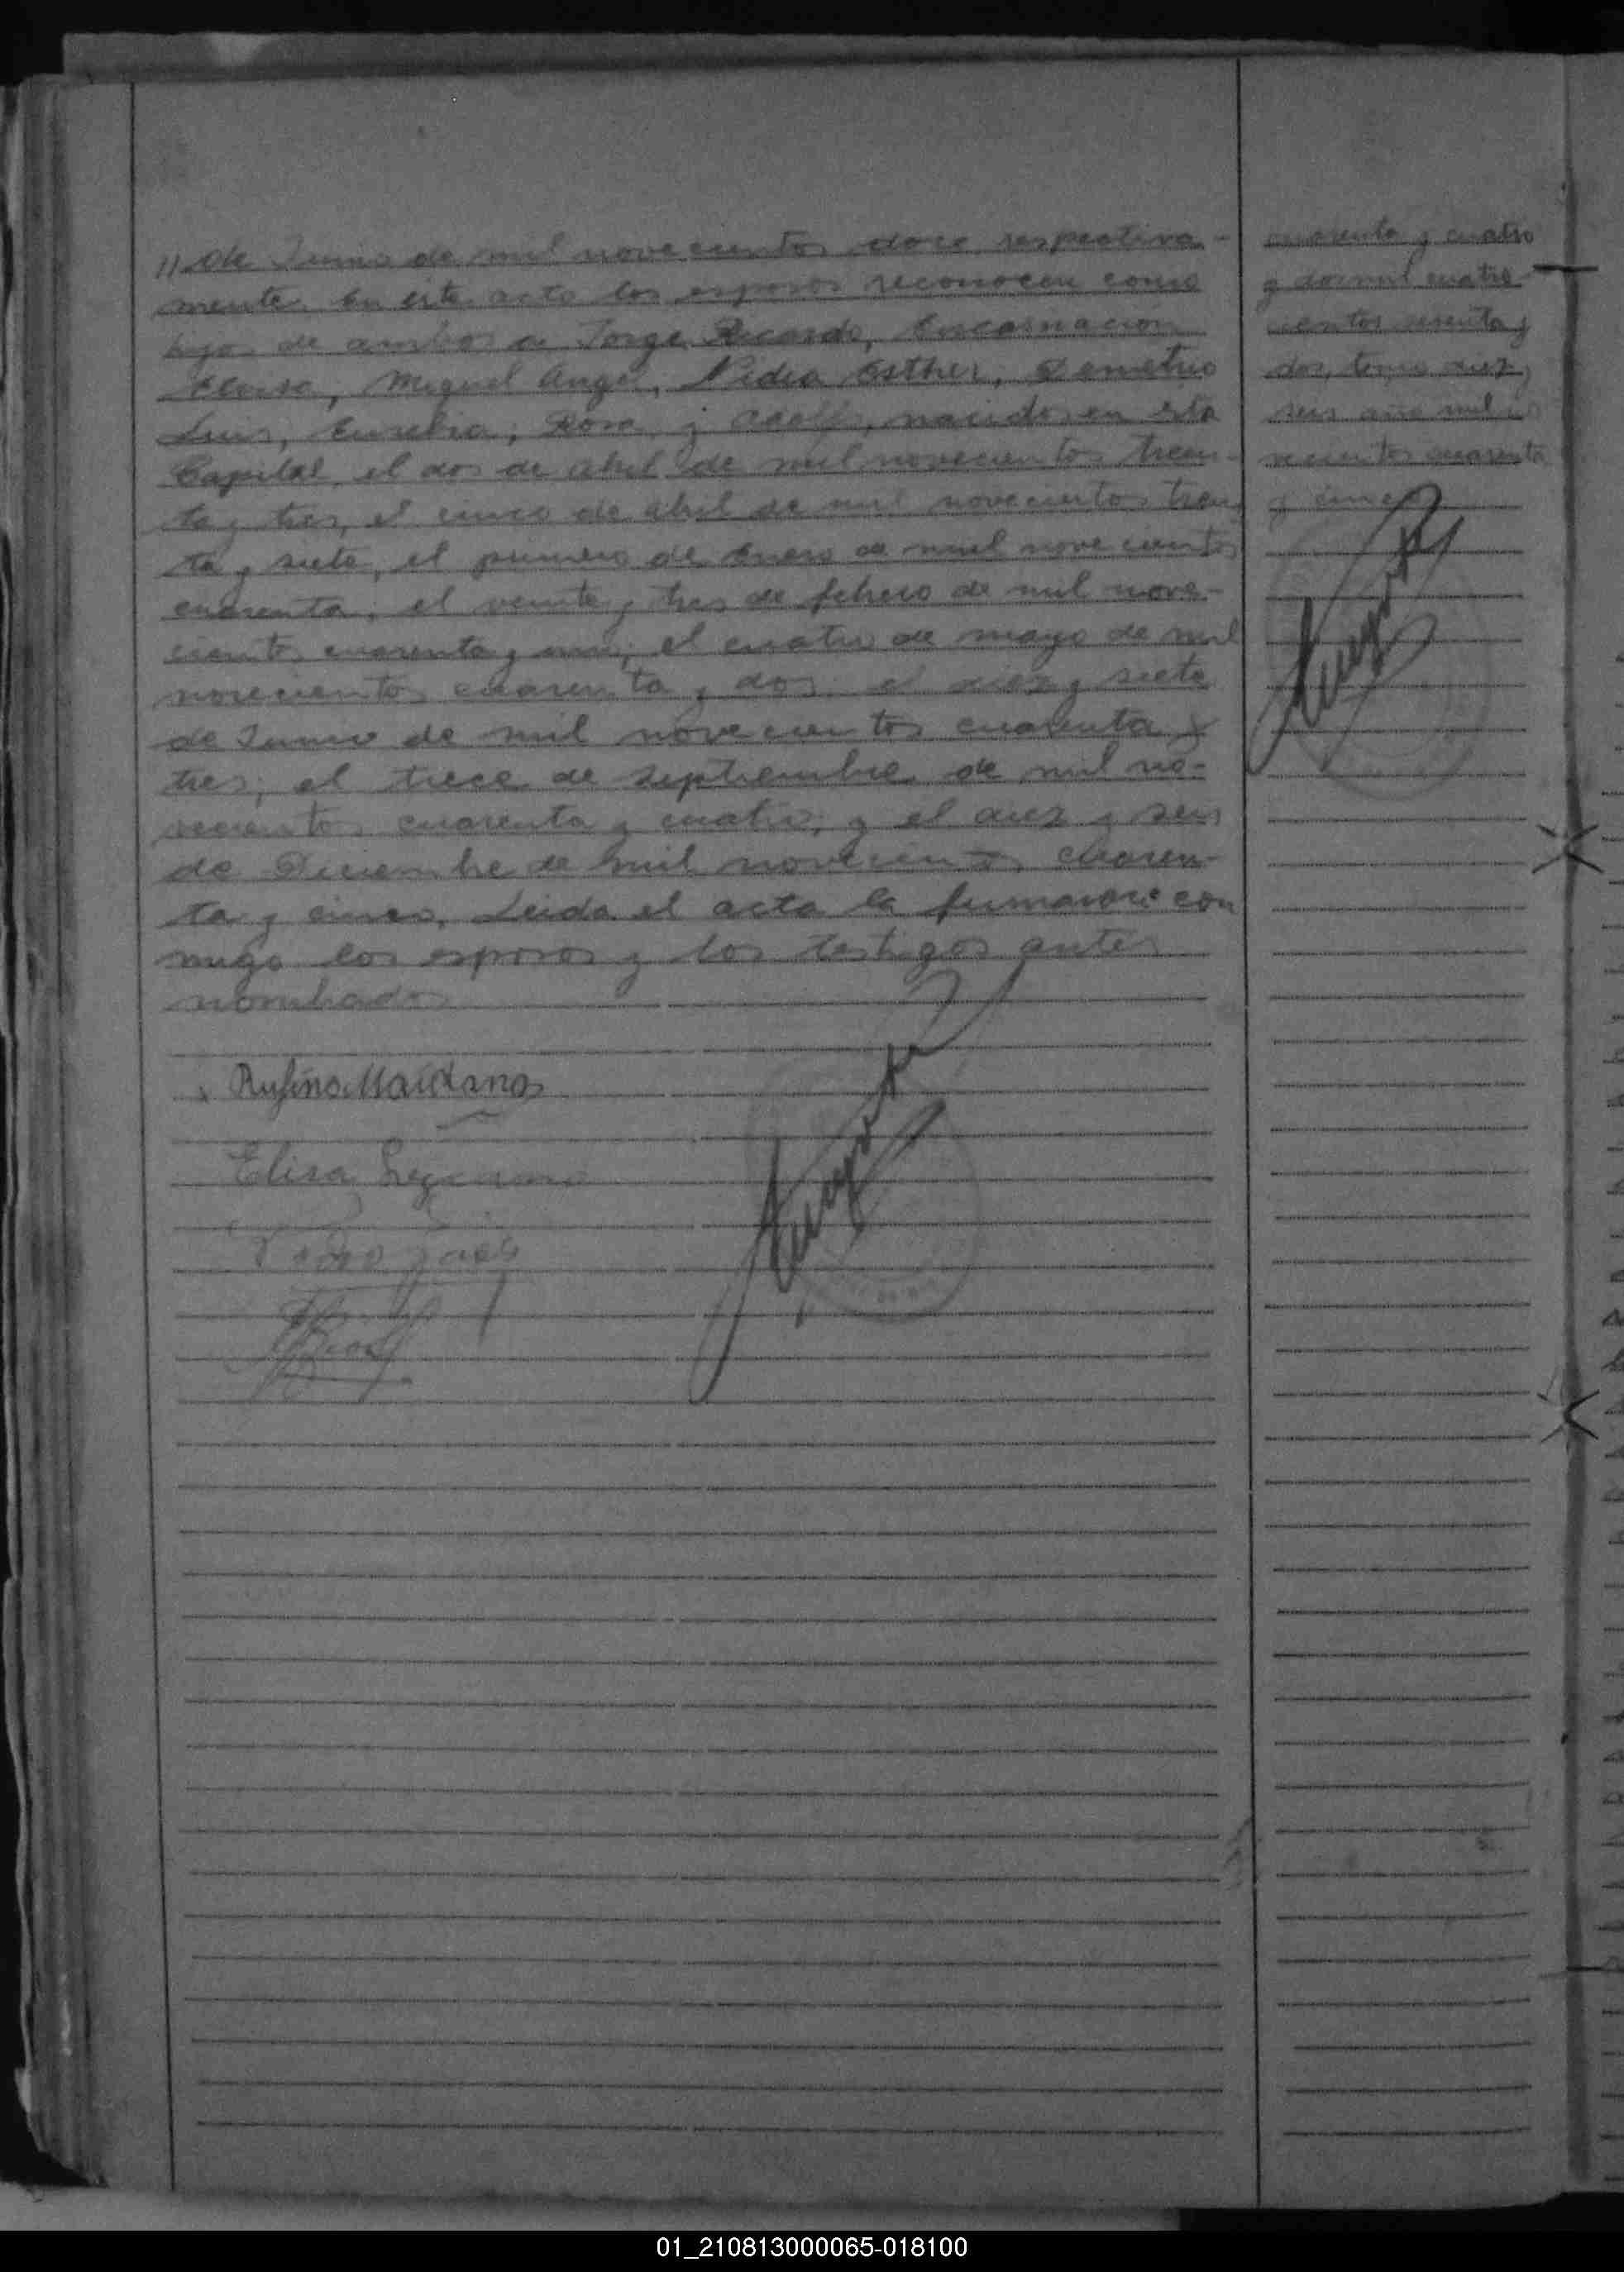 // de Junio de mil novecientos doce respectiva-
mente. En este acto los esposos reconocen como
hijos de ambos a Jorge Ricardo, Encarnacion
Eloisa, Miguel Angel, Nidia Esther, Demetrio
Luis, Eusebia, Rosa y Adolfo, nacidos en esta
Capital el dos de abril de mil novecientos trein-
ta y tres, el cinco de abril de mil novecientos trein
ta y siete, el primero de Enero de mil novecientos
cuarenta, el veinte y tres de febrero de mil nove-
cientos cuarenta y uno, el cuatro de mayo de mil
novecientos cuarenta y dos, el diez y siete
de Junio de mil novecientos cuarenta y
tres, el trece de septiembre de mil no-
vecientos cuarenta y cuatro, y el diez y seis
de Diciembre de mil novecientos cuaren-
ta y cinco. Leida el acta la firmaron con
migo los esposos y los testigos antes
nombrados
Rufino Maidana
Elisa
cuarenta y cuatro
y dos mil cuatro-
cientos sesenta y
dos, tomo diez y
seis año mil no
vecientos cuarenta
y cinco
01_210813000065-018100